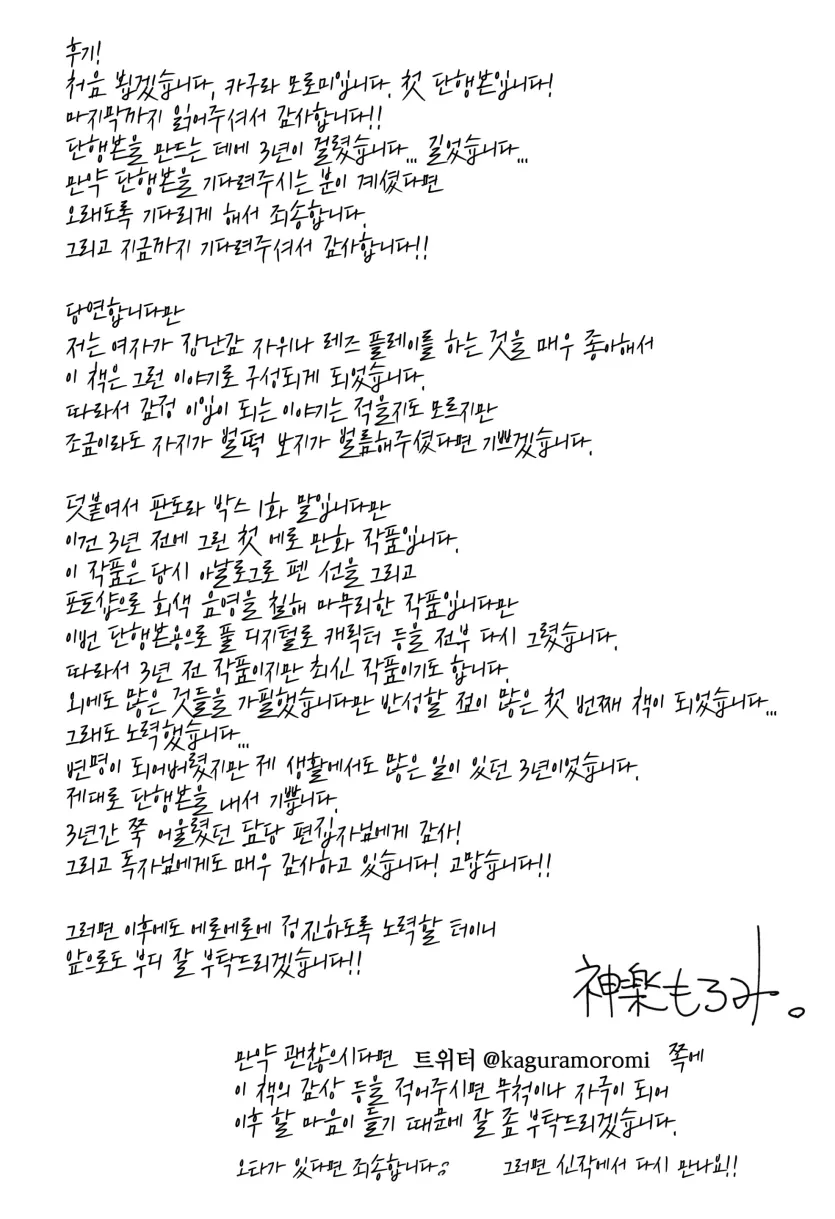 후기!
처음 뵙겠습니다, 카구라 모로미입니다. 첫 단행본입니다!
마지막까지 읽어주셔서 감사합니다!!
단행본을 만드는 데에 3년이 걸렸습니다... 길었습니다...
만약 단행본을 기다려주시는 분이 계셨다면
오래도록 기다리게 해서 죄송합니다.
그리고 지금까지 기다려주셔서 감사합니다!!
당연합니다만
저는 여자가 장난감 자위나 레즈 플레이를 하는 것을 매우 좋아해서
이 책은 그런 이야기로 구성되게 되었습니다.
따라서 감정 이입이 되는 이야기는 적을지도 모르지만
조금이라도 자지가 벌떡 보지가 벌름해주셨다면 기쁘겠습니다.
덧붙여서 판도라 박스 1화 말입니다만
이건 3년 전에 그린 첫 에로 만화 작품입니다.
이 작품은 당시 아날로그로 펜 선을 그리고
포토샵으로 회색 음영을 칠해 마무리한 작품입니다만
이번 단행본용으로 풀 디지털로 캐릭터 등을 전부 다시 그렸습니다.
따라서 3년 전 작품이지만 최신 작품이기도 합니다.
외에도 많은 것들을 가필했습니다만 반성할 점이 많은 첫 번째 책이 되었습니다...
그래도 노력했습니다...
변명이 되어버렸지만 제 생활에서도 많은 일이 있던 3년이었습니다.
제대로 단행본을 내서 기쁩니다.
3년간 쭉 어울렸던 담당 편집자님에게 감사!
그리고 독자님에게도 매우 감사하고 있습니다! 고맙습니다!!
그러면 이후에도 에로에로에 정진하도록 노력할 터이니
앞으로도 부디 잘 부탁드리겠습니다!!
神楽もろみ。
만약 괜찮으시다면 트위터 @kaguramoromi 쪽에
이 책의 감상 등을 적어주시면 무척이나 자극이 되어
이후 할 마음이 들기 때문에 잘 좀 부탁드리겠습니다.
오타가 있다면 죄송합니다。 그러면 신작에서 다시 만나요!!